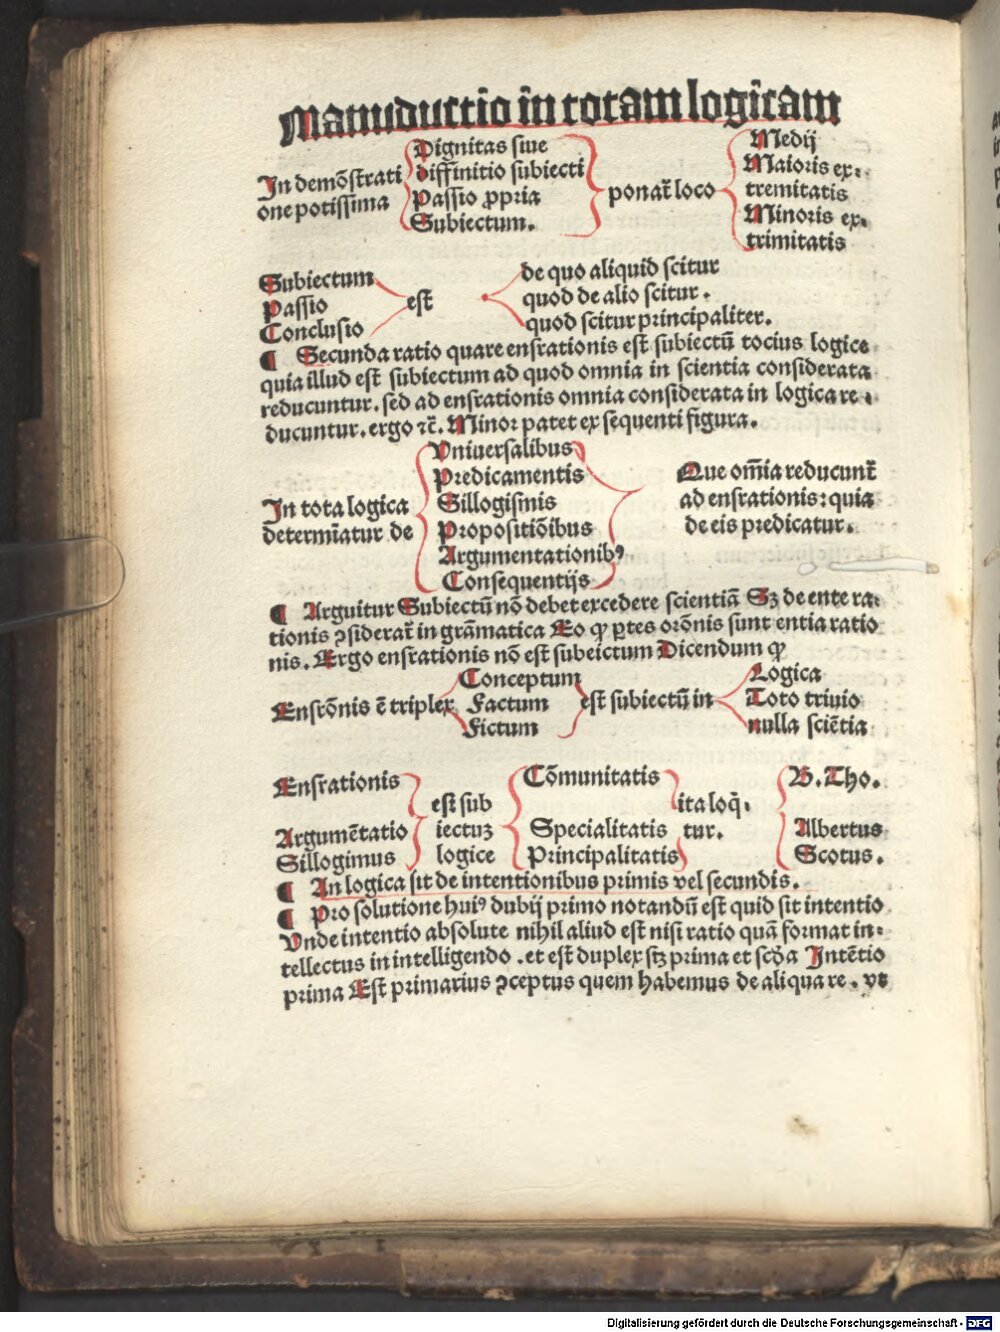 Manuductio in totam logicam
In demõstrati
one potissima
Dignitas siue
diffinitio subiecti
Passio ꝓpria
Subiectum.
ponat᷑ loco
Medij
Maioris ex⸗
tremitatis
Minoris ex⸗
trimitatis
Subiectum
Passio
Conclusio
est
de quo aliquid scitur
quod de alio scitur.
quod scitur principaliter.
¶ Secunda ratio quare ensrationis est subiectũ tocius logice
quia illud est subiectum ad quod omnia in scientia considerata
reducuntur. sed ad ensrationis omnia considerata in logica re⸗
ducuntur. ergo ⁊c̃. Minor patet ex sequenti figura.
In tota logica
determĩatur de
Vniuersalibus
Predicamentis
Sillogismis
Propositiõibus
Argumentationibꝰ
Consequentijs
Que om̃ia reducunt᷑
ad ensrationis: quia
de eis predicatur.
¶ Arguitur Subiectũ nõ debet excedere scientiã Sꝫ de ente ra⸗
tionis ꝯsiderat᷑ in grãmatica Eo ꝙ ꝑtes orõnis sunt entia ratio
nis. Ergo ensrationis nõ est subeictum Dicendum ꝙ
Ensrõnis ẽ triplex
Conceptum
Factum
Fictum
est subiectũ in
Logica
Toto triuio
nulla sciẽtia
Ensrationis
Argumẽtatio
Sillogimus
est sub
iectuꝫ
logice
Cõmunitatis
Specialitatis
Principalitatis
ita loq̃⸗
tur.
B. Tho.
Albertus
Scotus.
¶ An logica sit de intentionibus primis vel secundis.
¶ Pro solutione huiꝰ dubij primo notandũ est quid sit intentio
Vnde intentio absolute nihil aliud est nisi ratio quã format in⸗
tellectus in intelligendo. et est duplex sꝫ prima et scd̃a Intẽtio
prima Est primarius ꝯceptus quem habemus de aliqua re. vt
Digitalisierung gefördert durch die Deutsche Forschungsgemeinschaft - DFG